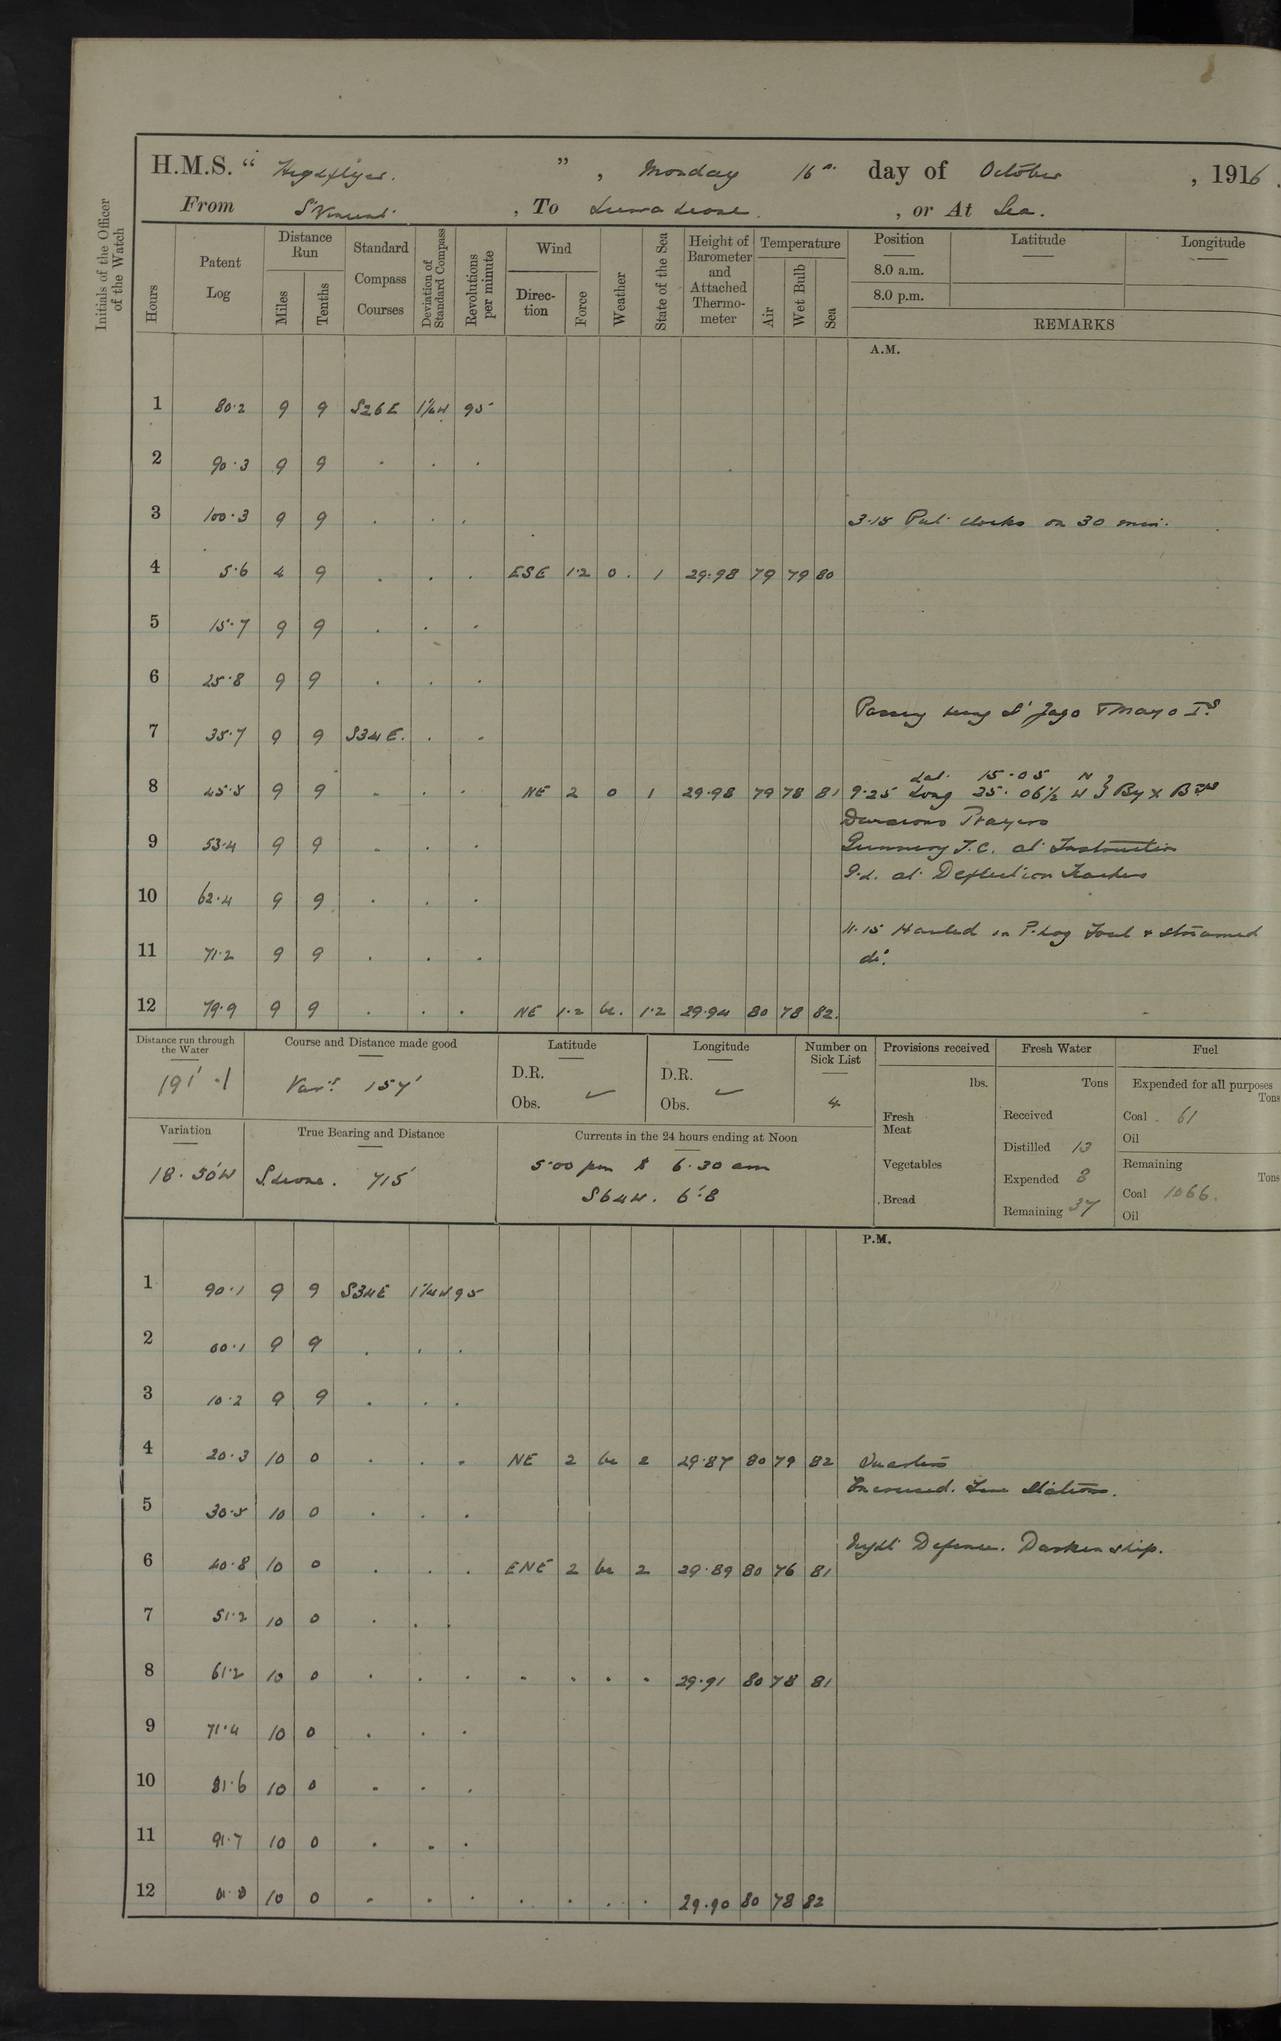 H.M.S. “ Highflyer. ” , Monday 16th day of October , 1916.
From St Vincent , To Sierra Leone. , or At Sea.
Initials of the Officer of the Watch
Hours Patent Log Distance Run Miles Tenths Standard Compass Courses Deviation of Standard Compass Revolutions per minute Wind Direction Force Weather State of the Sea Height of Barometer and Attached Thermometer Temperature Air Wet Bulb Sea Position Latitude Longitude
8.0 a.m.
8.0 p.m.
REMARKS
A.M.
1 80.2 9 9 S26E 1½W 95
2 90.3 9 9 . . .
3 100.3 9 9 . . . 3.15 Put clocks on 30 min.
4 5.6 4 9 . . . ESE 1.2 o. 1 29.98 79 79 80
5 15.7 9 9 . . .
6 25.8 9 9 . . .
Passing St Jago & Mayo Is
7 35.7 9 9 S34E. . .
Lat. 15.05 N
8 45.5 9 9 . . . NE 2 o 1 29.98 79 78 81 9.25 Long 25.06½ W } By X Bgs
Divisions Prayers
9 53.4 9 9 . . . Gunnery T.C. at Instruction
at Deflection Teacher
10 62.4 9 9 . . .
11.15 Hauled in P. Log Foul & streamed
11 71.2 9 9 . . . do.
12 79.9 9 9 . . . NE 1.2 bc. 1.2 29.94 80 78 82.
Distance run through the Water Course and Distance made good Latitude Longitude Number on Sick List Provisions received Fresh Water Fuel
191'.1 Vars. 157' D.R. Obs. ✓ D.R. Obs. ✓ 4
lbs. Tons Expended for all purposes Tons
Fresh Meat Received Coal . 61
Oil
Variation True Bearing and Distance Currents in the 24 hours ending at Noon
Distilled 13
18.50'W S. Leone. 715' 5.00 pm to 6.30 am
S64W. 6'.8
Vegetables Expended 8 Remaining Tons
Bread Remaining 37 Coal 1066.
Oil
P.M.
1 90.1 9 9 S34E 1¼W 95
2 00.1 9 9 . . .
3 10.2 9 9 . . .
4 20.3 10 0 . . . NE 2 bc 2 29.87 80 79 82 Quarters
Exercised. Fire Stations.
5 30.5 10 0 . . .
Night Defence. Darken ship.
6 40.8 10 0 . . . ENE 2 bc 2 29.89 80 76 81
7 51.2 10 0 . . .
8 61.2 10 0 . . . . . . . 29.91 80 78 81
9 71.4 10 0 . . .
10 81.6 10 0 . . .
11 91.7 10 0 . . .
12 10 0 . . . . . . . 29.90 80 78 82